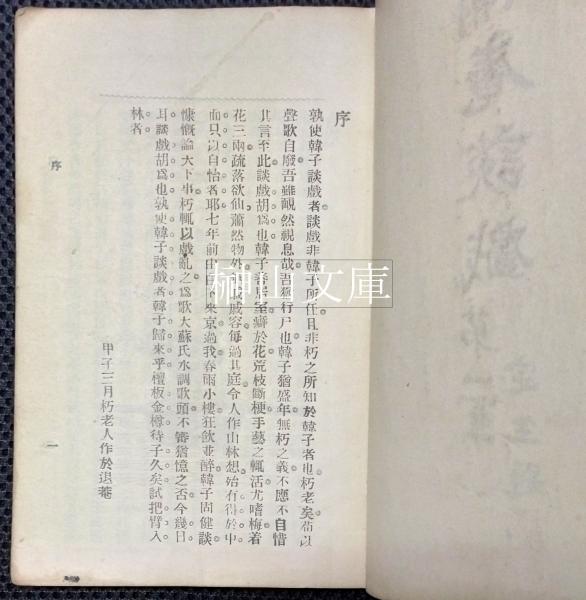 序
孰使韓子談戲者談戲非韓子所任且非朽之所知於韓子者也朽老矣苟以
聲歌自廢吾雖靦然視息哉吾猶行尸也韓子猶盛年無朽之義不應不自惜
其言至此談戲胡爲也韓子者居室癖於花荒枝斷梗手藝之輒活尤嗜梅着
花三兩疏落欲仙蕭然物外
戚容每過其庭令人作山林想殆有得於中
而只以自怡者耶七年前
來京過我春雨小樓狂飲並醉韓子固健談
慷慨論天下事朽輒以戲亂之爲歌大蘇氏水調歌頭不審猶憶之否今幾日
耳談戲胡爲也孰使韓子談戲者韓子歸來乎檀板金樽待子久矣試把臂入
林者
甲子三月朽老人作於退菴
序
一
榊山文庫